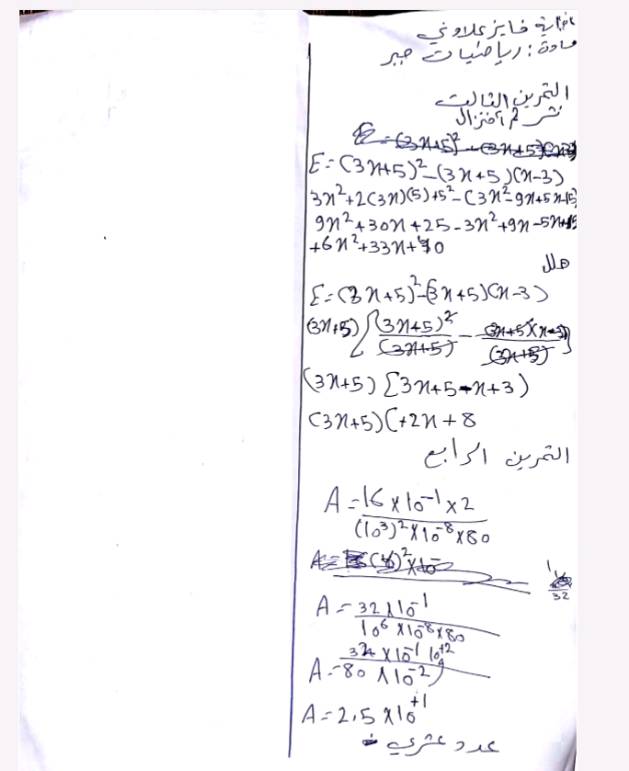 فايز علاوني
مادة: رياضيات جبر
التمرين الثالث
نشر ثم أختزال
E=(3x+5)²-(3x+5)(x-3)
E=(3x+5)²-(3x+5)(x-3)
3x²+2(3x)(5)+5²-(3x²-9x+5x-15)
9x²+30x+25-3x²+9x-5x+15
+6x²+33x+40
حلل
E=(3x+5)²-(3x+5)(x-3)
(3x+5)[(3x+5)²/(3x+5) - (3x+5)(x-3)/(3x+5)]
(3x+5)[3x+5-x+3)
(3x+5)(+2x+8
التمرين الرابع
A=16×10⁻¹×2
(10³)²×10⁻⁸×80
A=32×10⁻¹
10⁶×10⁻⁸×80
32×10⁻¹ 10⁺²
A=80×10⁻²
A=2,5×10⁺¹
عدد عشري